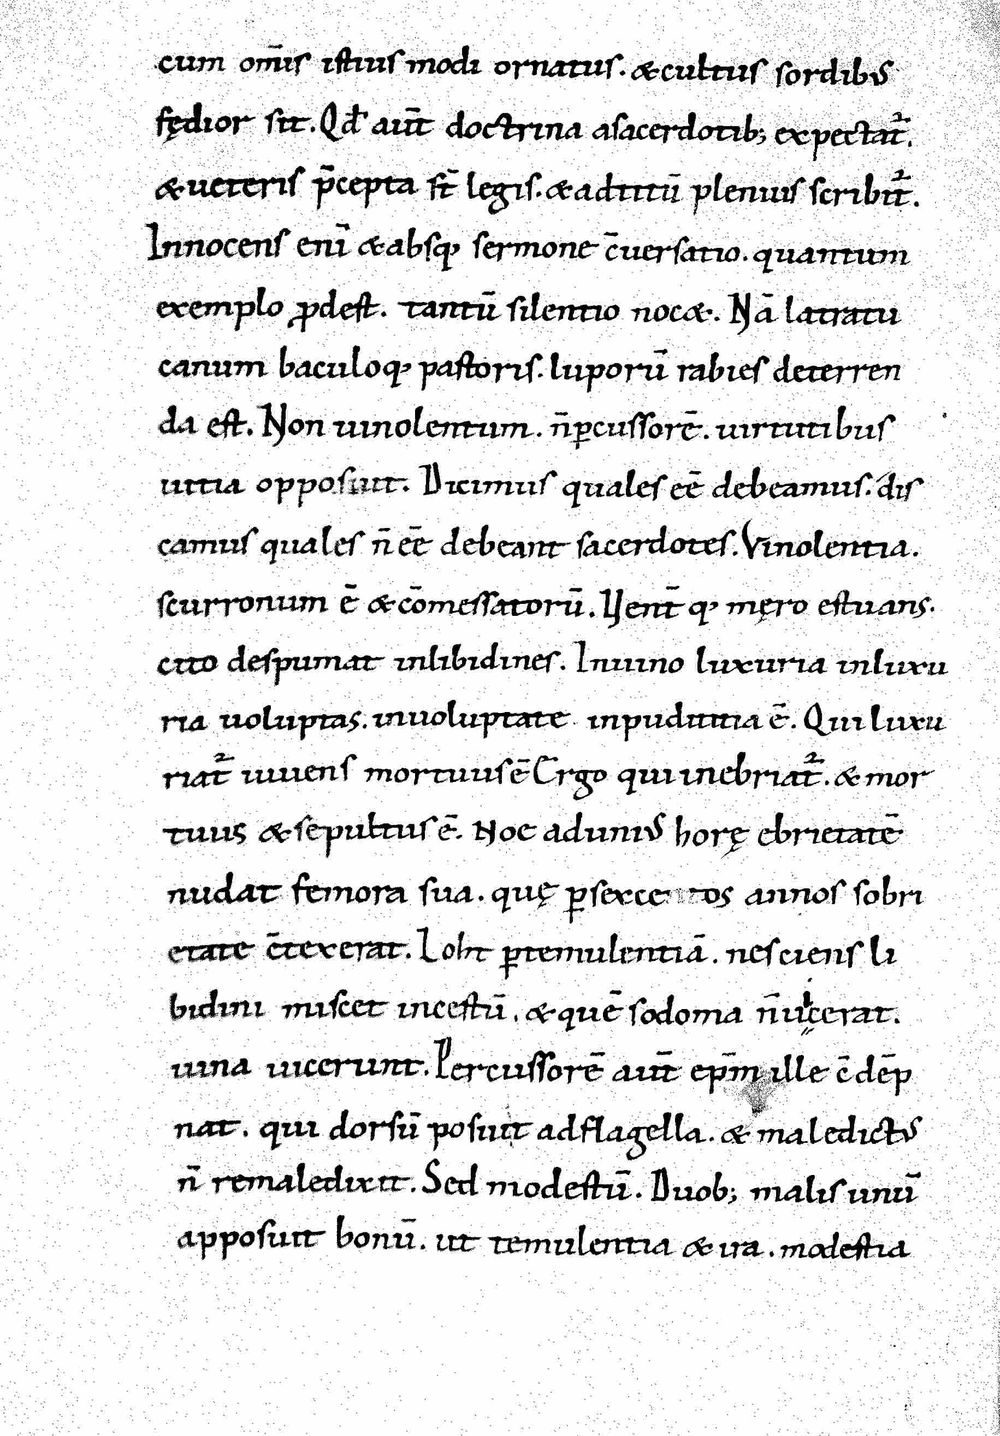 cum om̄is istius modi ornatus. &cultus sordib᷒
fędior sit. Qđ aut̄ doctrina asacerdotib; expectat᷑.
&ueteris p̄cepta st̄ legis. &adtitū plenius scribit᷑.
Innocens eni̅ &absq; sermone c̄uersatio. quantum
exemplo ꝓdest. tantū silentio noc&. Nā latratu
canum baculoq; pastoris. luporū rabies deterren
da est. Non uinolentum. n̄ ꝑcussorē. uirtutibus
uitia opposuit. Dicimus quales eē debeamus. dis
camus quales n̄ eē debeant sacerdotes. Vinolentia.
scurronum ē &cōmessatorū. Uent̄ q; męro estuans.
cito despumat inlibidines. Inuino luxuria inluxu
ria uoluptas. inuoluptate inpudititia ē. Qui luxu
riat᷑ uiuens mortuus ē Ergo qui inebriat᷑. &mor
tuus &sepultus ē. Noe aduni᷒ horę ebrietatē
nudat femora sua. quę ꝑsexcentos annos sobri
etate c̄texerat. Loht ꝑtemulentiā. nesciens li
bidini miscet incestū. &quē sodoma n̄ uicerat.
uina uicerunt. Percussorē aut̄ ep̄m ille c̄dēp
nat. qui dorsū posuit adflagella. & maledict᷒
n̄ remaledixit. Sed modestū. Duob; malis unū
apposuit bonū. ut temulentia & ira. modestia